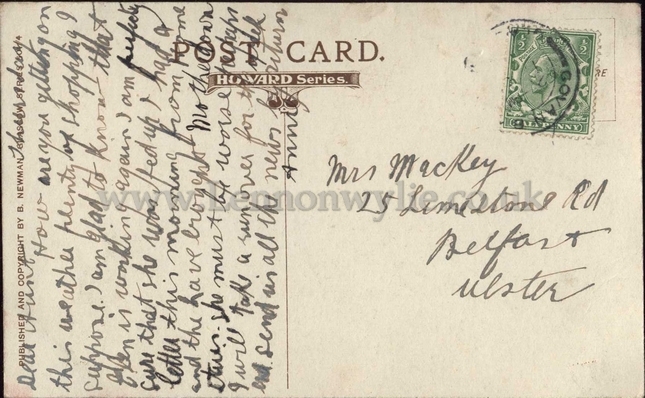 POST CARD.
HOWARD Series.
PUBLISHED AND COPYRIGHT BY B. NEWMAN, GLASGOW
Thursday
Dear Aunt How are you getting on
this weather plenty of shopping I
suppose. I am glad to know that
is working again I am perfectly
sure that she was fed up. I had a
letter this morning from home
and the have brought Mother down
stairs. she must be worse perhaps
I will take a run over for the week
end. send us all the news by return
Annie
Mrs Mackey
25 Limestone Rd
Belfast
Ulster
½ ½
HALFPENNY
GOVAN
www.Lennonwylie.co.uk